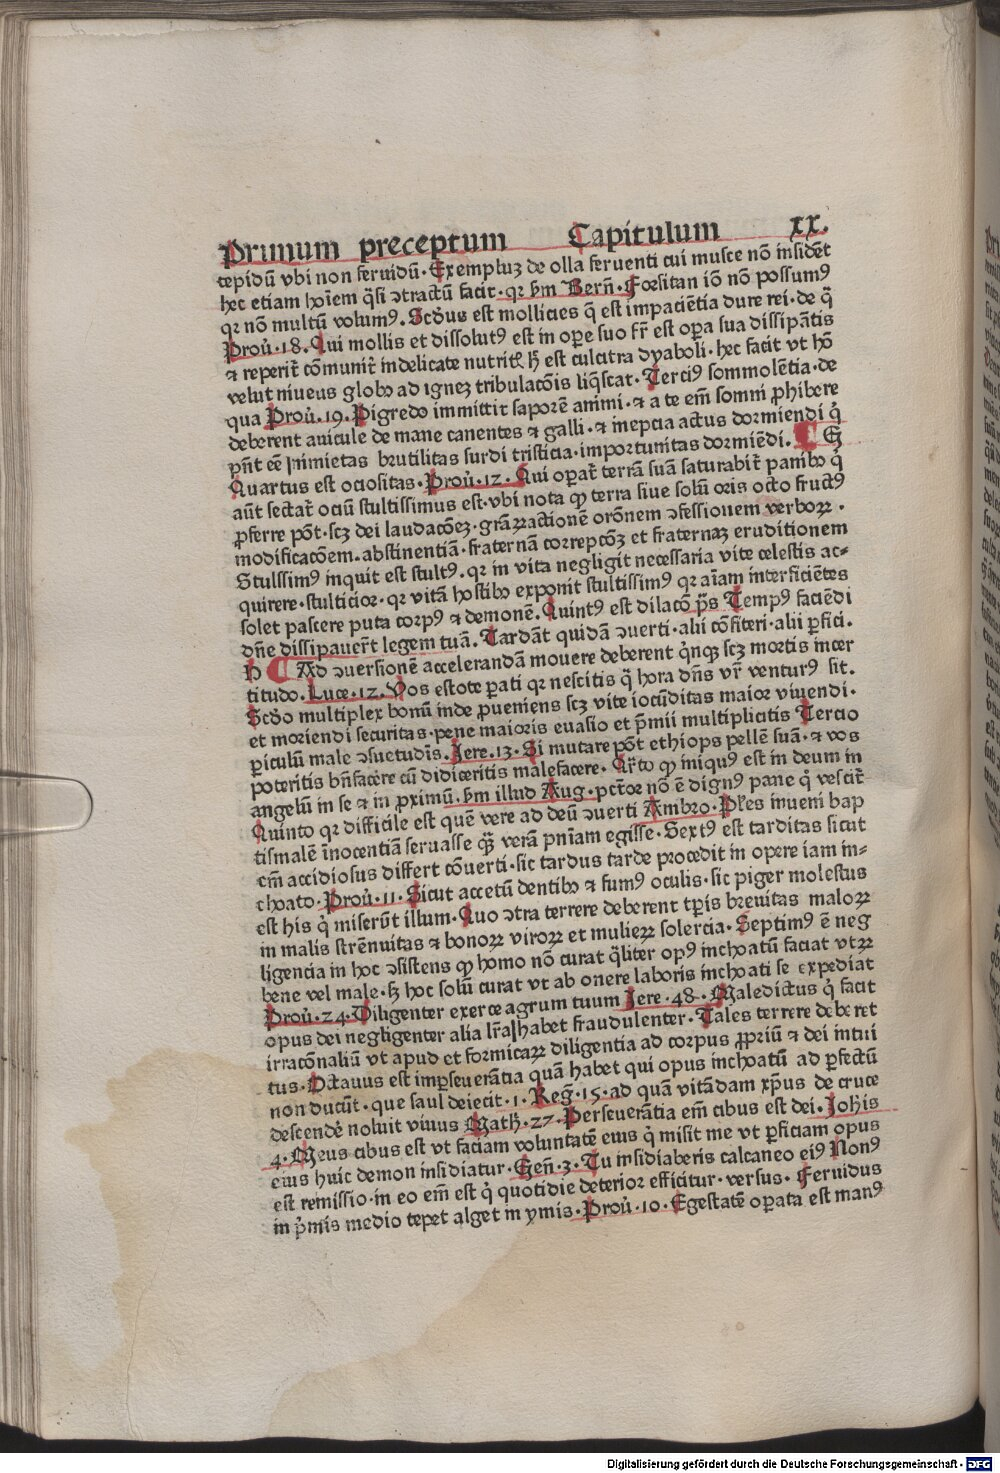 Primum preceptum Capitulum XX.
tepidū vbi non feruidū. Exempluꝫ de olla feruenti cui musce nō insidēt
hec etiam hoīem q̄si ↄtractū facit. qꝛ ẜm Berñ. Foꝛsitan iō nō possumꝰ
qꝛ nō multū volumꝰ. Scḋus est mollicies q̄ est impaciētia dure rei. de q̄
Proū. 18. Qui mollis et dissolutꝰ est in oꝑe suo fr̄ est oꝑa sua dissipātis
⁊ reperit̄ cōmunit̄ in delicate nutritꝭ hͥ est culcitra dyaboli. hec facit vt hō
velut niueus globꝰ ad igneꝫ tribulacōis liq̄scat. Terciꝰ sommolētia. de
qua Proū. 19. Pigredo immittit saporē animi. ⁊ a te em̄ somni ꝓhibere
deberent auicule de mane canentes ⁊ galli. ⁊ inepcia actus dormiendi q̇
pn̄t cē nimietas brutilitas surdi tristicia. importunitas dormiēdi. ¶ G
Quartus est ociositas. Proū. 12. Qui oꝑat̄ terrā suā saturabit̄ panibꝰ q̇
aūt sectat̄ ociū stultissimus est. vbi nota ꝙ terra siue solū oris octo fructꝰ
ꝓferre pōt. scꝫ dei laudacōeꝫ. grāꝝactionē orōnem ↄfessionem verboꝝ.
modificacōem. abstinentiā. fraternā correpcōꝫ et fraternaꝫ eruditionem
Stulssimꝰ inquit est stultꝰ. qꝛ in vita negligit necessaria vite celestis ac⸗
quirere. stulticior. qꝛ vitā hostibꝰ exponit stultissimꝰ qꝛ aīam interficiētes
solet pascere puta corpꝰ ⁊ demonē. Quintꝰ est dilacō p̄s Tempꝰ faciēdi
dn̄e dissipauer̄t legem tuā. Tardāt quidā ↄuerti. alii cōfiteri. alii ꝑfici.
H ¶ Ad ↄuersionē accelerandā mouere deberent q̇nqꝫ scꝫ mortis incer
titudo. Luce. 12. Vos estote ꝑati qꝛ nescitis q̄ hora dn̄s vr̄ venturꝰ sit.
Scḋo multiplex bonū inde ꝓueniens scꝫ vite iocūditas maior viuendi.
et moriendi securitas. pene maioris euasio et p̄mii multiplicitis Tercio
ꝑiculū male ↄsuetudīs. Jere. 13. Si mutare pōt ethiops pellē suā. ⁊ vos
poteritis bn̄facere cū didiceritis malefacere. Qr̄to ꝙ iniquꝰ est in deum in
angelū in se ⁊ in ꝓximū. ẜm illud Aug. pctor̄ nō ē dignꝰ pane q̇ vescit̄
Quinto qꝛ difficile est quē vere ad deū ↄuerti Ambro. Pl̄es inueni bap
tismalē īnocentiā seruasse qꝫ̄ verā pn̄iam egisse. Sextꝰ est tarditas sicut
em̄ accidiosus differt cōuerti. sic tardus tarde procedit in opere iam in⸗
choato. Proū. 11. Sicut accetū dentibꝰ ⁊ fumꝰ oculis. sic piger molestus
est his q̇ miserūt illum. Quo ↄtra terrere deberent tp̄is breuitas maloꝝ
in malis strēnuitas ⁊ bonoꝝ viroꝝ et mulieꝝ solercia. Septimꝰ ē neg
ligencia in hoc ↄsistens ꝙ homo nō curat q̄liter opꝰ inchoatū faciat vtꝝ
bene vel male. sꝫ hoc solū curat vt ab onere laboris inchoati se expediat
Proū. 24. Diligenter exerce agrum tuum Jere. 48. Maledictus q̇ facit
opus dei negligenter alia lr̄a habet fraudulenter. Tales terrere deberet
irracōnaliū vt apud et formicaꝝ diligentia ad corpus ꝓpriū ⁊ dei intui
tus. Octauus est imꝑseuerātia quā habet qui opus inchoatū ad ꝑfectū
non ducūt. que saul deiecit. 1. Reg̃. 15. ad quā vitādam xp̄us de cruce
descendē noluit viuus Math. 27. Perseuerātia em̄ cibus est dei. Joh̄is
4. Meus cibus est vt faciam voluntatē eius q̇ misit me vt ꝑficiam opus
eius huic demon insidiatur. Geñ. 3. Tu insidiaberis calcaneo eiꝰ Nonꝰ
est remissio. in eo em̄ est q̇ quotidie deterior efficitur. versus. Feruidus
in p̄mis medio tepet alget in ymis. Proū. 10. Egestatē oꝑata est manꝰ
Digitalisierung gefördert durch die Deutsche Forschungsgemeinschaft - DFG